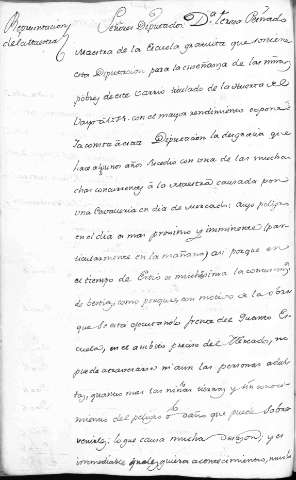 Representacion
de la Maestra
Señores Diputados. Dª Teresa Peinado
Maestra de la Escuela gratuita que sostiene
esta Diputacion para la enseñanza de las niñas
pobres de este Barrio titulado de la
con el mayor rendimiento expone
la consta à esta Diputacion la desgracia que
hace algunos años sucedio con una de las mucha-
chas concurrentes à la Maestra causada por
una Cavalleria en dia de Mercado: cuyo peligro
en el dia es mas proximo y imminente (par-
ticularmente en la mañana) asi porque en
el tiempo de Estio es muchisima la concurrencia
de bestias, como porque con motivo de la obra
que se está executando frente del Quarto Es-
cuela, en el ambito preciso del Mercado, no
puede atravesarse ni aun las personas adul-
tas, quanto mas las niñas tiernas y sin conoci-
miento del peligro ò daño que puede sobre
venirle; lo que causa mucha desazon; y es
immediable qualesquiera acontecimiento,